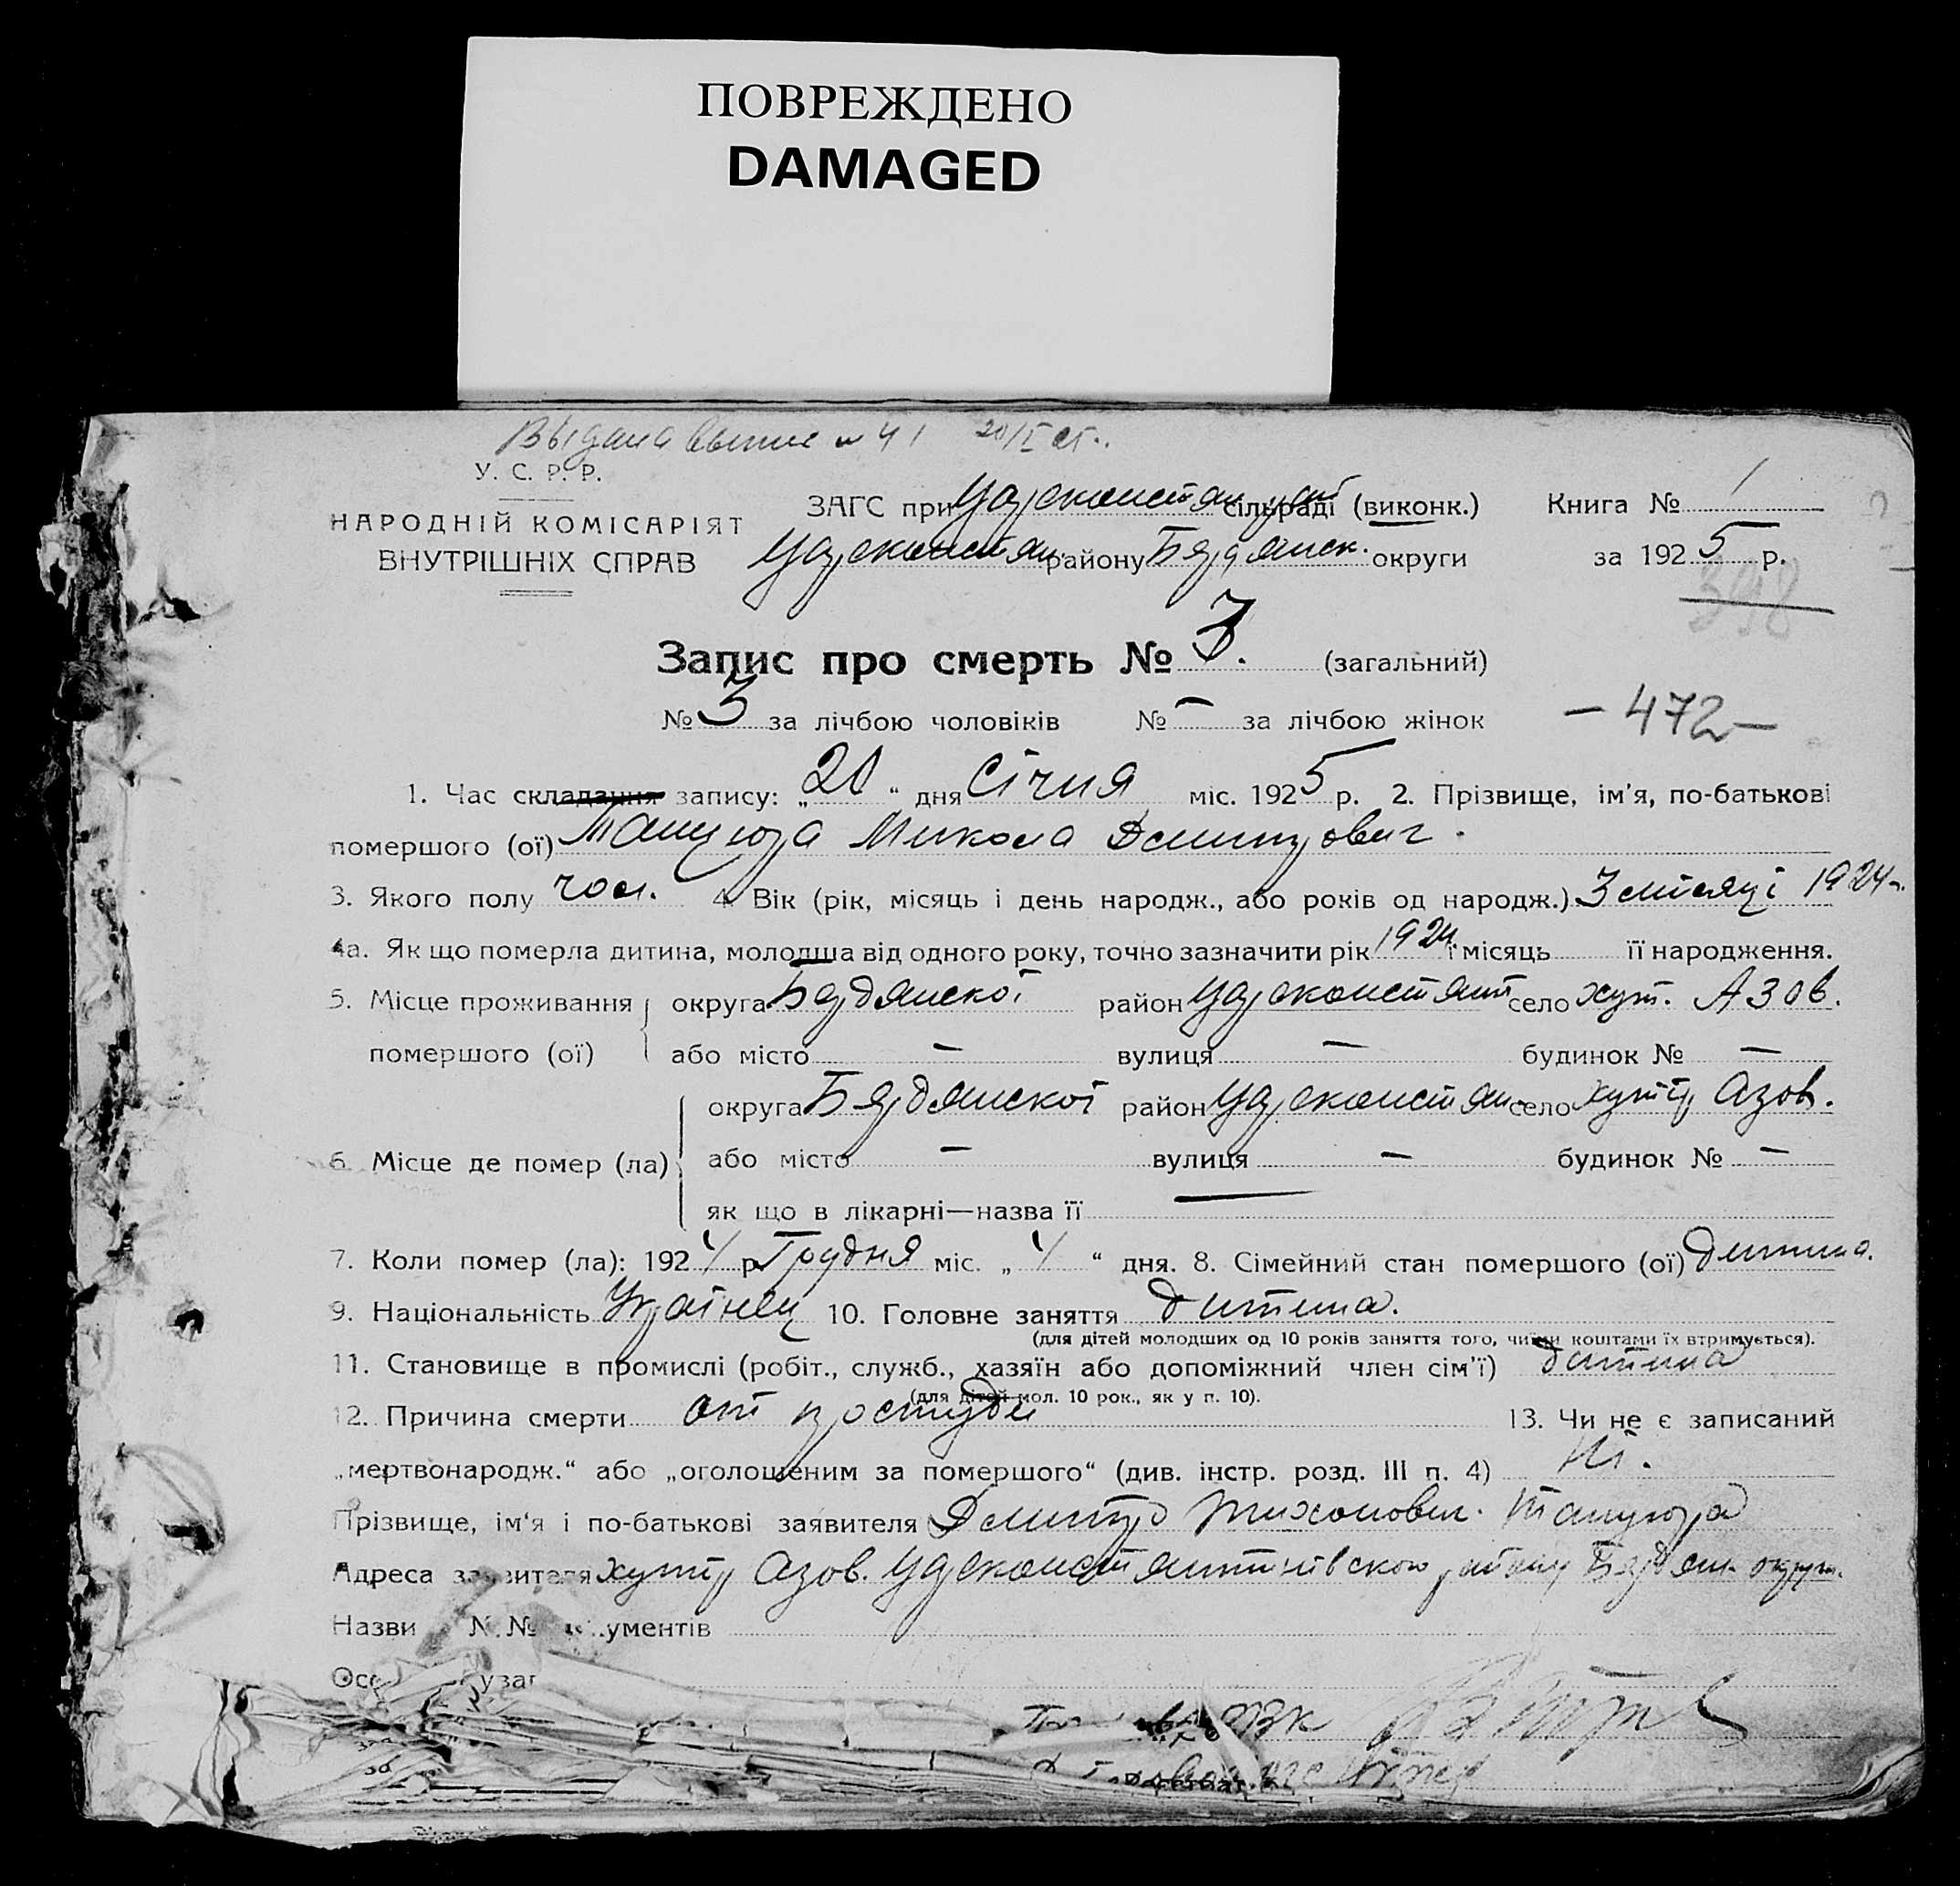 ПОВРЕЖДЕНО
DAMAGED
Выдана 20/I 25.
У. С. Р. Р.
НАРОДНІЙ КОМІСАРІЯТ
ВНУТРІШНІХ СПРАВ
ЗАГС при Цареконстян сільраді (виконк.) Книга № 1
Цареконстян району Бердянск. округи за 1925 р.
398
Запис про смерть № 3. (загальний)
№ 3 за лічбою чоловіків № — за лічбою жінок
— 472 —
1. Час складання запису: „20“ дня Січня міс. 1925 р. 2. Прізвище, ім'я, по-батькові
помершого (ої) Танцюра Микола Дмитрович.
3. Якого полу чол. 4. Вік (рік, місяць і день народж., або років од народж.) 3 місяці 1924 р.
4а. Як що померла дитина, молодша від одного року, точно зазначити рік 1924 і місяць її народження.
5. Місце проживання округа Бердянскої район Цареконстянт село хут. Азов.
помершого (ої) або місто — вулиця — будинок № —
округа Бердянскої район Цареконстян село хутір Азов.
6. Місце де помер (ла) або місто — вулиця — будинок № —
як що в лікарні—назва її —
7. Коли помер (ла): 1924 р. Грудня міс. „4“ дня. 8. Сімейний стан помершого (ої) дитина.
9. Національність Українец 10. Головне заняття дитина.
(для дітей молодших од 10 років заняття того, чиїми коштами їх втримується).
11. Становище в промислі (робіт., служб., хазяїн або допоміжний член сім'ї) дитина
(для дітей мол. 10 рок., як у п. 10).
12. Причина смерти от простуди 13. Чи не є записаний
„мертвонародж.“ або „оголошеним за помершого“ (див. інстр. розд. III п. 4) Ні.
Прізвище, ім'я і по-батькові заявителя Дмитро Тихонович Танцюра
Адреса заявителя хутір Азов. Царсконстянтинівского району Бердян. округи.
Назви № № документів
РВК